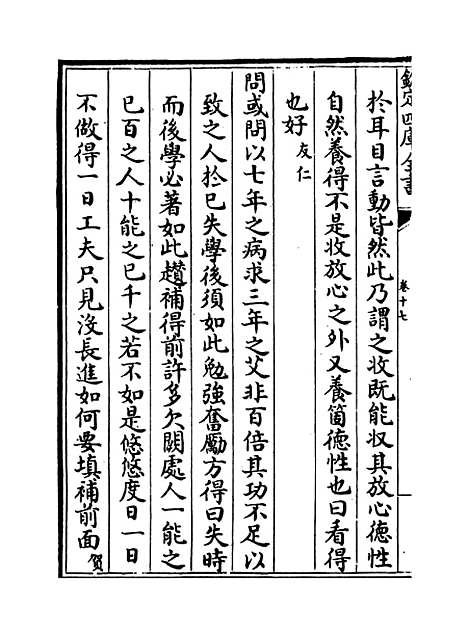 欽定四庫全書
卷十七
於耳目言動皆然此乃謂之收既能収其放心德性
自然養得不是收放心之外又養箇德性也曰看得
也好友仁
問或問以七年之病求三年之艾非百倍其功不足以
致之人於已失學後須如此勉強奮勵方得曰失時
而後學必著如此趲補得前許多欠闕處人一能之
已百之人十能之已千之若不如是悠悠度日一日
不做得一日工夫只見沒長進如何要填補前面賀